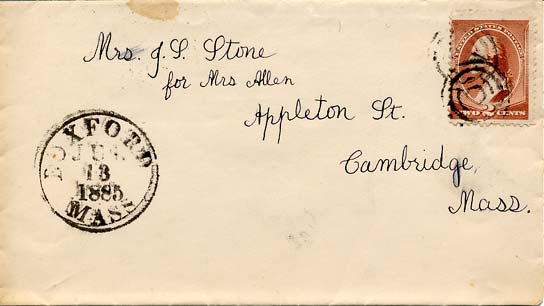 Mrs. J. S. Stone
for Mrs Allen
Appleton St.
Cambridge,
Mass.
UNITED STATES POSTAGE
TWO 2 CENTS
BOXFORD
13
1885
MASS